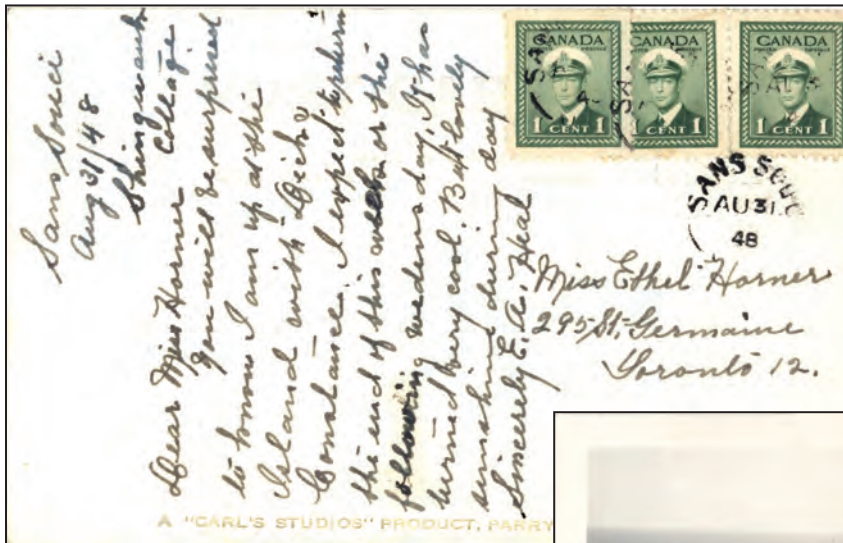 Sans Souci
Aug 31/48
Shingwauk
Cottage
Dear Miss Horner
You will be surprised
to know I am up at the
Island with Dick &
Constance. I expect to return
the end of this week or the
following wedensday. It has
turned very cool. But lovely
sunshine during day
Sincerely E. A. Heal
CANADA
1 CENT 1
CANADA
1 CENT 1
CANADA
1 CENT 1
SANS SOUC
AU 31
48
Miss Ethel Horner
295 St. Germaine
Toronto 12.
A "CARL'S STUDIOS" PRODUCT, PARRY